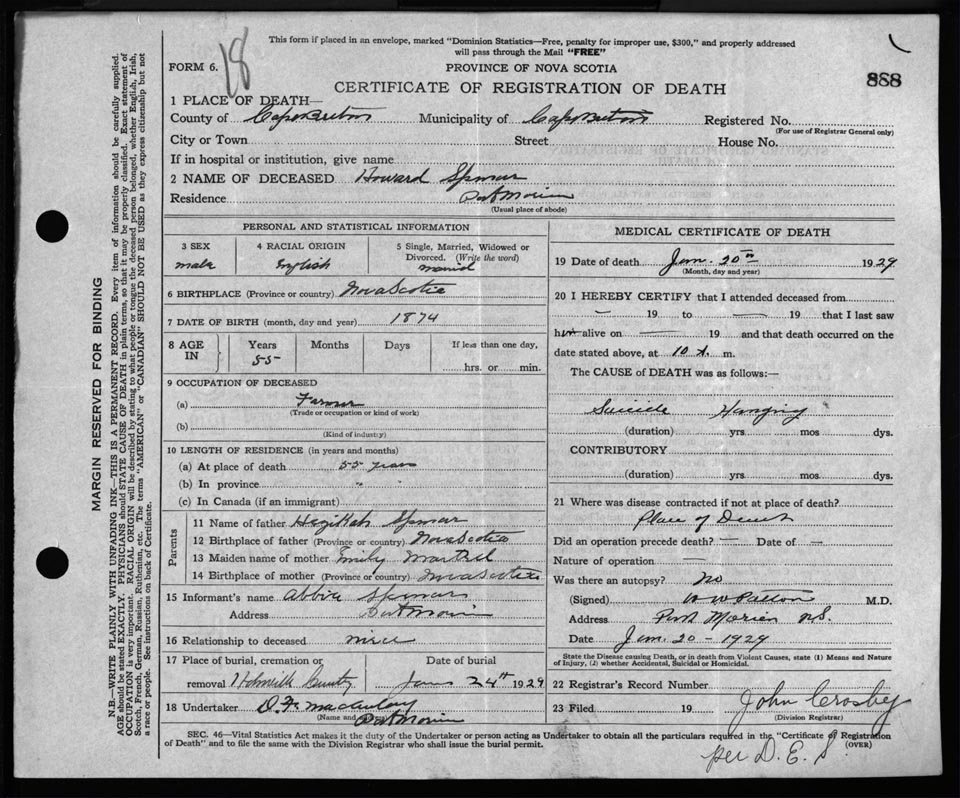 This form if placed in an envelope, marked "Dominion Statistics—Free, penalty for improper use, $300," and properly addressed
will pass through the Mail "FREE"
FORM 6.
18
PROVINCE OF NOVA SCOTIA
888
CERTIFICATE OF REGISTRATION OF DEATH
1 PLACE OF DEATH—
County of Cape Breton Municipality of Cape Breton Registered No.
(For use of Registrar General only)
City or Town Street House No.
If in hospital or institution, give name
2 NAME OF DECEASED Howard Spencer
Residence Port Morien
(Usual place of abode)
PERSONAL AND STATISTICAL INFORMATION
3 SEX 4 RACIAL ORIGIN 5 Single, Married, Widowed or
Divorced. (Write the word)
male English married
6 BIRTHPLACE (Province or country) Nova Scotia
7 DATE OF BIRTH (month, day and year) 1874
8 AGE IN Years Months Days If less than one day,
55 hrs. or min.
9 OCCUPATION OF DECEASED
(a) Farmer
(Trade or occupation or kind of work)
(b)
(Kind of industry)
10 LENGTH OF RESIDENCE (in years and months)
(a) At place of death 55 years
(b) In province " "
(c) In Canada (if an immigrant)
Parents
11 Name of father Spencer
12 Birthplace of father (Province or country) Nova Scotia
13 Maiden name of mother Emily Martell
14 Birthplace of mother (Province or country) Nova Scotia
15 Informant's name Abbie Spencer
Address Port Morien
16 Relationship to deceased niece
17 Place of burial, cremation or Date of burial
removal Jan 24th 1929
18 Undertaker D. F. MacAulay
(Name and
Port Morien
MEDICAL CERTIFICATE OF DEATH
19 Date of death Jan. 20th 1929
(Month, day and year)
20 I HEREBY CERTIFY that I attended deceased from
— 19 to — 19 that I last saw
h alive on — 19 and that death occurred on the
date stated above, at 10 A. m.
The CAUSE of DEATH was as follows:—
Suicide Hanging
(duration) yrs mos dys.
CONTRIBUTORY
(duration) yrs. mos dys.
21 Where was disease contracted if not at place of death?
Place of
Did an operation precede death? — Date of —
Nature of operation —
Was there an autopsy? no
(Signed) M.D.
Address Port Morien N.S.
Date Jan. 20 - 1929
State the Disease causing Death, or in death from Violent Causes, state (1) Means and Nature
of Injury, (2) whether Accidental, Suicidal or Homicidal.
22 Registrar's Record Number
23 Filed 19 John Crosby
(Division Registrar)
per D. E. S.
SEC. 46—Vital Statistics Act makes it the duty of the Undertaker or person acting as Undertaker to obtain all the particulars required in the "Certificate of Registration
of Death" and to file the same with the Division Registrar who shall issue the burial permit. (OVER)
MARGIN RESERVED FOR BINDING
N.B.—WRITE PLAINLY WITH UNFADING INK—THIS IS A PERMANENT RECORD. Every item of information should be carefully supplied.
AGE should be stated EXACTLY. PHYSICIANS should STATE CAUSE OF DEATH in plain terms, so that it may be properly classified. Exact statement of
OCCUPATION is very important. RACIAL ORIGIN will be described by stating to what people or tongue the deceased person belonged, whether English, Irish,
Scotch, French, German, Russian, Ruthenian, etc. The terms "AMERICAN" or "CANADIAN" SHOULD NOT BE USED as they express citizenship but not
a race or people. See instructions on back of Certificate.